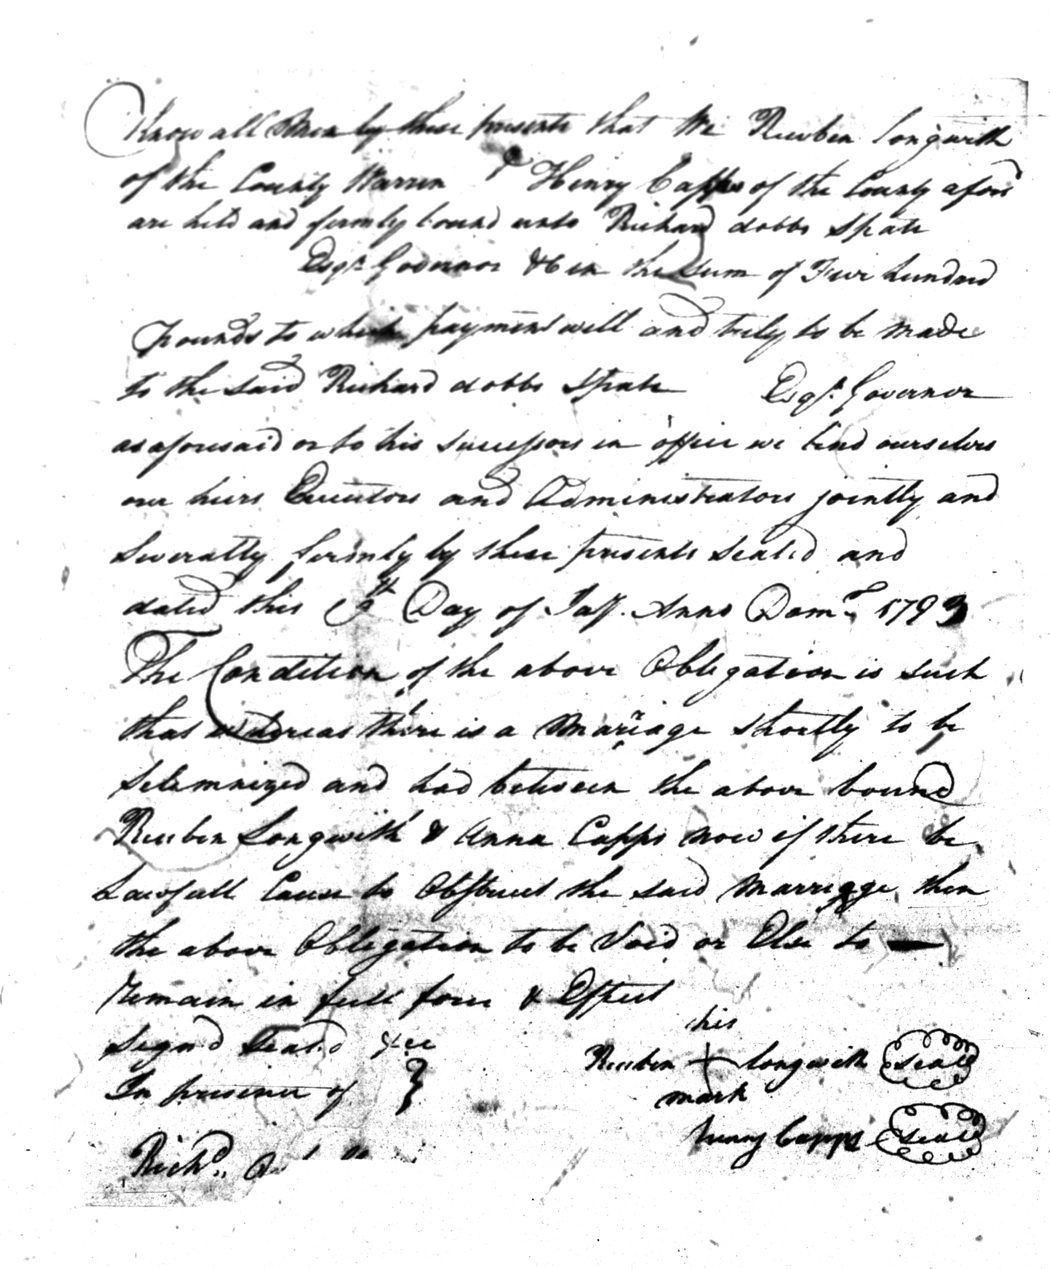 Know all Men by these presents that We Reuben Longwith
of the County Warren & Henry Capps of the County afors'd
are held and firmly bound unto Richard dobbs Spate
Esqr. Governor &C in the sum of Five hundred
Pounds to which payment will and truly to be made
to the said Richard dobbs Spate Esqr. Governor
as aforesaid or to his successors in office we bind ourselves
our heirs Executors and Administrators jointly and
Severally firmly by these presents Sealed and
dated this Day of Anno Dom. 1793
The Condition of the above Obligation is such
that whereas there is a Marriage shortly to be
Solemnized and had between the above bound
Reuben Longwith & Anna Capps now if there be
Lawfull Cause to Obstruct the said Marriage then
the above Obligation to be Void or Else to —
Remain in full force & Effect
Signd Seald &cc
In presence of }
his
Reuben + Longwith Seal
mark
henry Capps Seal
Richd.